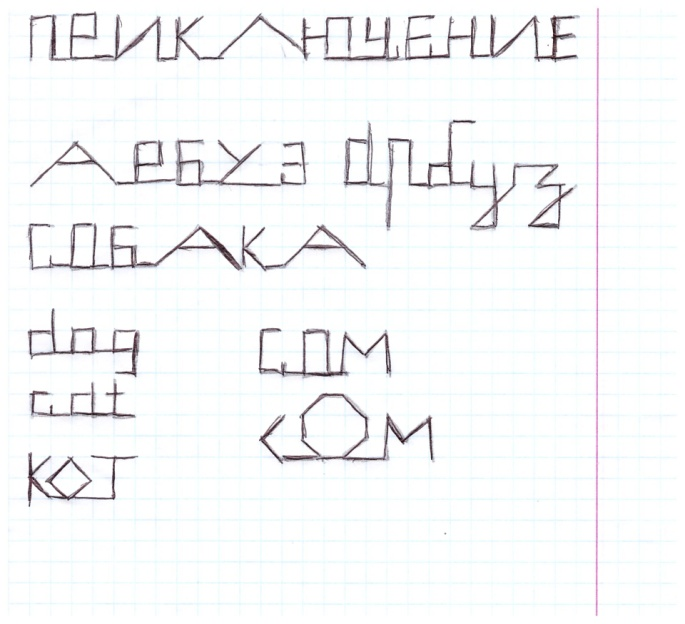 ПРИКЛЮЧЕНИЕ
АРБУЗ арбуз
СОБАКА
dog СОМ
cat
СОМ
КОТ